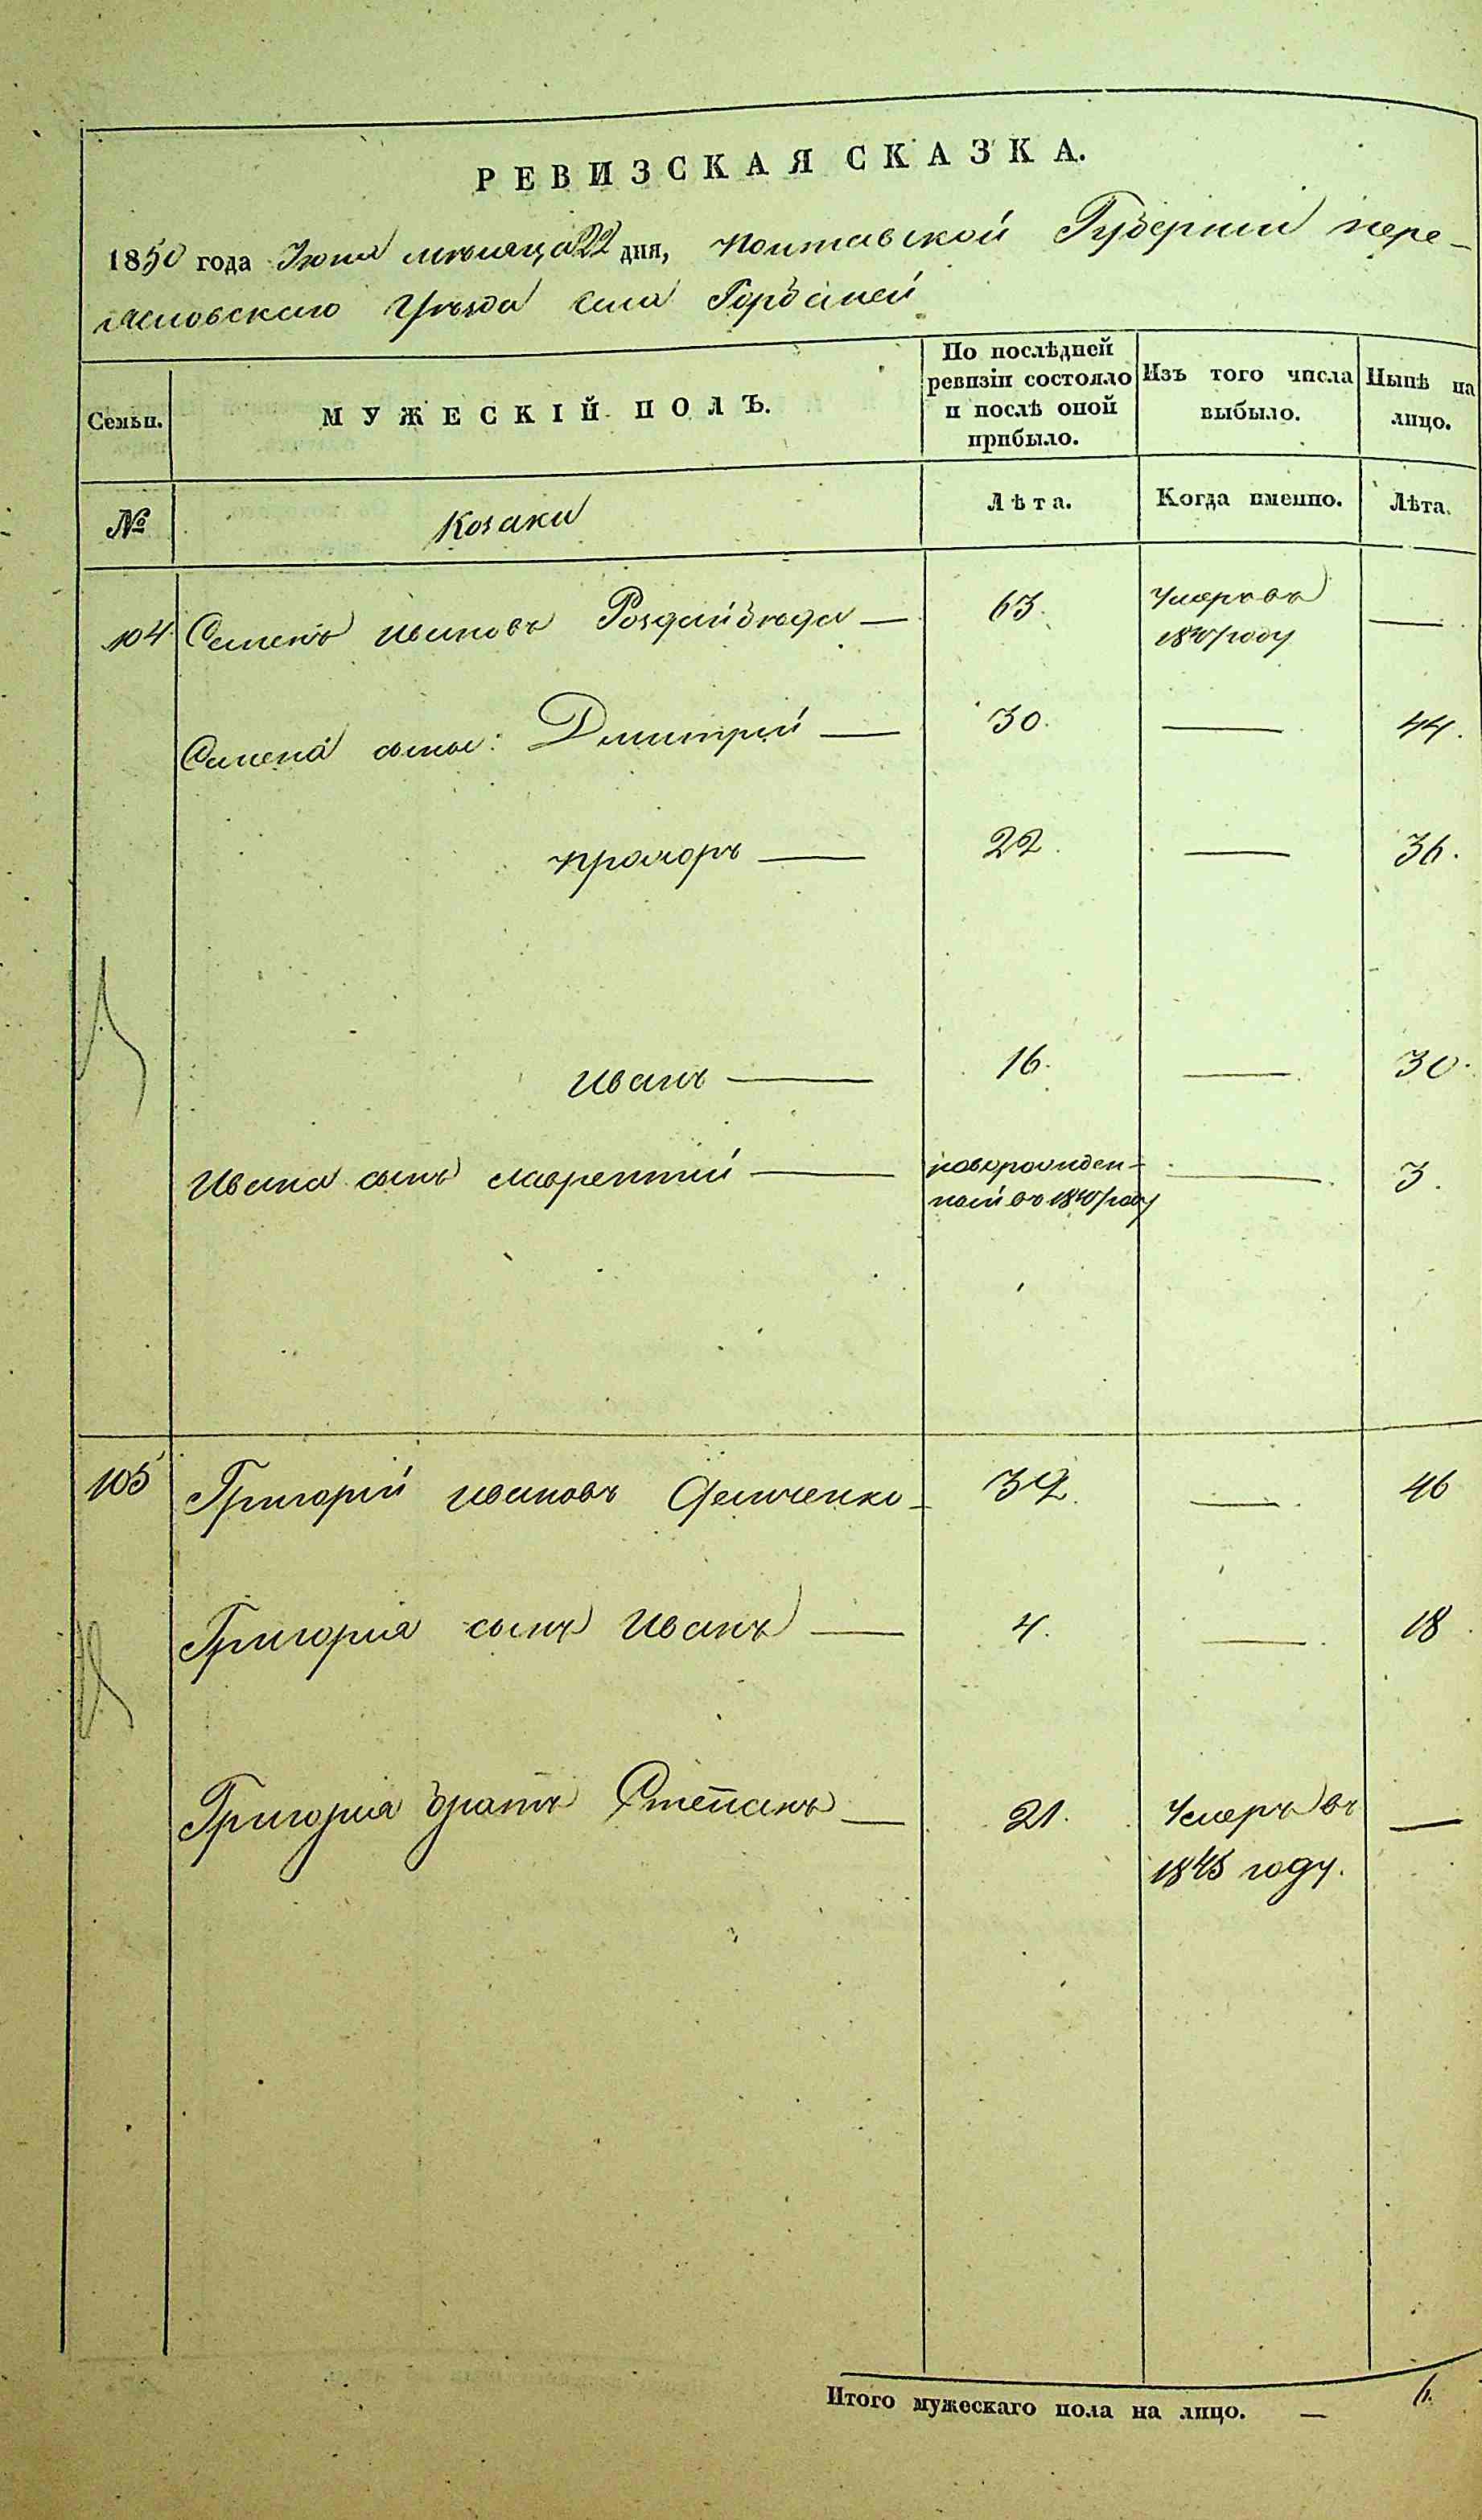 РЕВИЗСКАЯ СКАЗКА.
1850 года Июня мѣсяца 22 дня, Полтавской Губерніи пере-
яславского Уѣзда села Горбаней
Семьи.
МУЖЕСКІЙ ПОЛЪ.
По послѣдней
ревизіи состояло
и послѣ оной
прибыло.
Изъ того числа
выбыло.
Нынѣ на
лицо.
№
Козаки
Лѣта.
Когда именно.
Лѣта.
104 Семенъ Ивановъ Роздайбѣда — 63. Умеръ въ —
1847 году
Семена сыны: Дмитрій — 30. — 44.
Прохоръ — 22. — 36.
Иванъ — 16. — 30.
Ивана сынъ Лаврентій — новорожден- — 3.
ный въ 1847 году
105 Григорій Ивановъ Демченко — 32. — 46
Григорія сынъ Иванъ — 4. — 18
Григорія братъ Степанъ — 21. Умеръ въ —
1845 году.
Итого мужескаго пола на лицо. — 6.